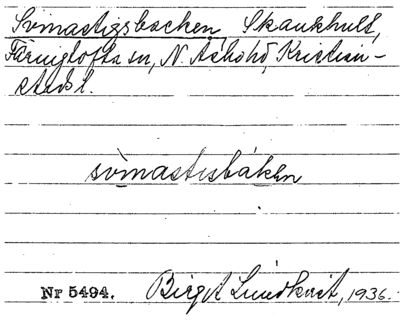 Svinastigsbacken Skankhult,
Färingtofta sn, N. Åsbohd, Kristian-
stads l.
svinastisbáken
Nr 5494. Birgit Lundkvist, 1936.